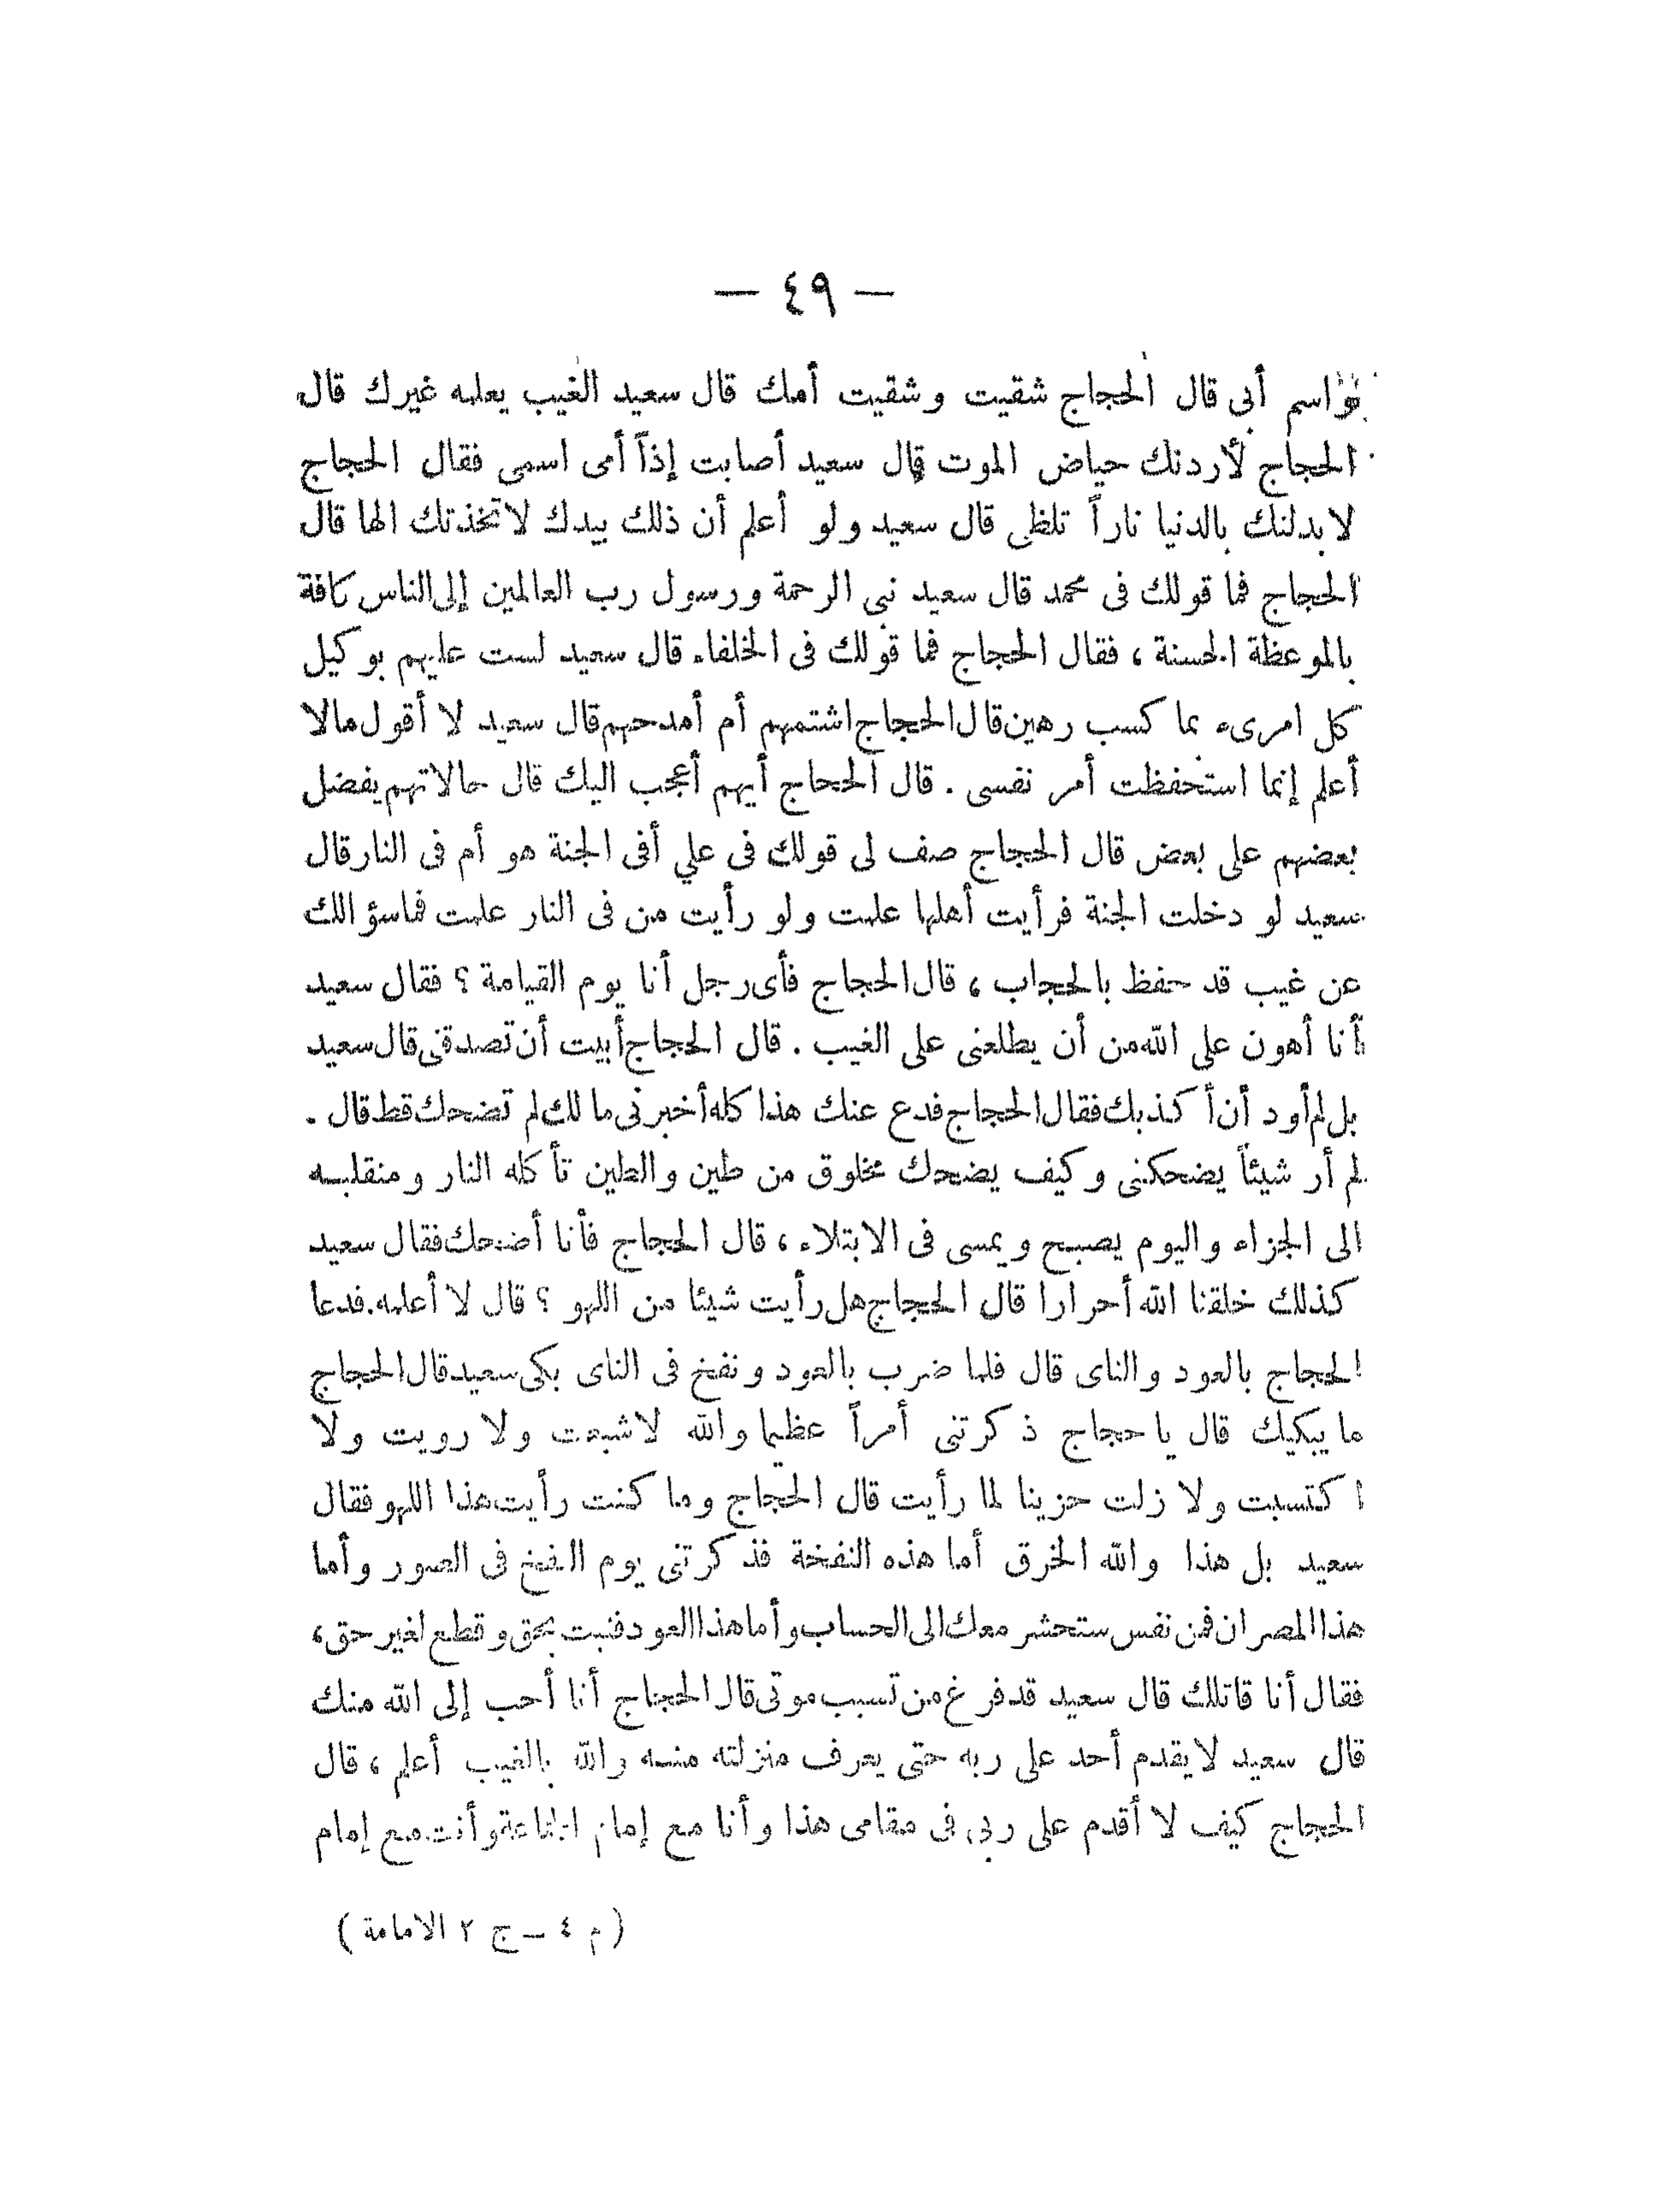 — ٤٩ —
واسم أبى قال الحجاج شقيت وشقيت أمك قال سعيد الغيب يعلمه غيرك قال
الحجاج لأردنك حياض الموت قال سعيد أصابت إذاً أمى اسمى فقال الحجاج
لابدلنك بالدنيا ناراً تلظى قال سعيد ولو أعلم أن ذلك بيدك لاتخذتك الها قال
الحجاج فما قولك فى محمد قال سعيد نبى الرحمة ورسول رب العالمين إلى الناس كافة
بالموعظة الحسنة ، فقال الحجاج فما قولك فى الخلفاء قال سعيد لست عليهم بوكيل
كل امرىء بما كسب رهين قال الحجاج اشتمهم أم أمدحهم قال سعيد لا أقول مالا
أعلم إنما استحفظت أمر نفسى . قال الحجاج أيهم أعجب اليك قال حالاتهم يفضل
بعضهم على بعض قال الحجاج صف لى قولك فى علي أفى الجنة هو أم فى النار قال
سعيد لو دخلت الجنة فرأيت أهلها علمت ولو رأيت من فى النار علمت فماسؤالك
عن غيب قد حفظ بالحجاب ، قال الحجاج فأى رجل أنا يوم القيامة ؟ فقال سعيد
أنا أهون على الله من أن يطلعنى على الغيب . قال الحجاج أبيت أن تصدقنى قال سعيد
بل لم أود أن أكذبك فقال الحجاج فدع عنك هذا كله أخبرنى مالك لم تضحك قط قال .
لم أر شيئاً يضحكنى وكيف يضحك مخلوق من طين والطين تأكله النار ومنقلبه
الى الجزاء واليوم يصبح ويمسى فى الابتلاء ، قال الحجاج فأنا أضحك فقال سعيد
كذلك خلقنا الله أحرارا قال الحجاج هل رأيت شيئا من اللهو ؟ قال لا أعلمه . فدعا
الحجاج بالعود والناى قال فلما ضرب بالعود ونفخ فى الناى بكى سعيد قال الحجاج
ما يبكيك قال ياحجاج ذكرتنى أمراً عظيما والله لاشبعت ولا رويت ولا
اكتسبت ولا زلت حزينا لما رأيت قال الحجاج وما كنت رأيت هذا اللهو فقال
سعيد بل هذا والله الخرق أما هذه النفخة فذكرتنى يوم النفخ فى الصور وأما
هذا المصران فمن نفس ستحشر معك الى الحساب وأما هذا العود فنبت بحق وقطع لغير حق ،
فقال أنا قاتلك قال سعيد قد فرغ من تسبب موتى قال الحجاج أنا أحب إلى الله منك
قال سعيد لايقدم أحد على ربه حتى يعرف منزلته منه والله بالغيب أعلم ، قال
الحجاج كيف لا أقدم على ربى فى مقامى هذا وأنا مع إمام الجماعة وأنت مع إمام
( م ٤ ــ ج ٢ الامامة )